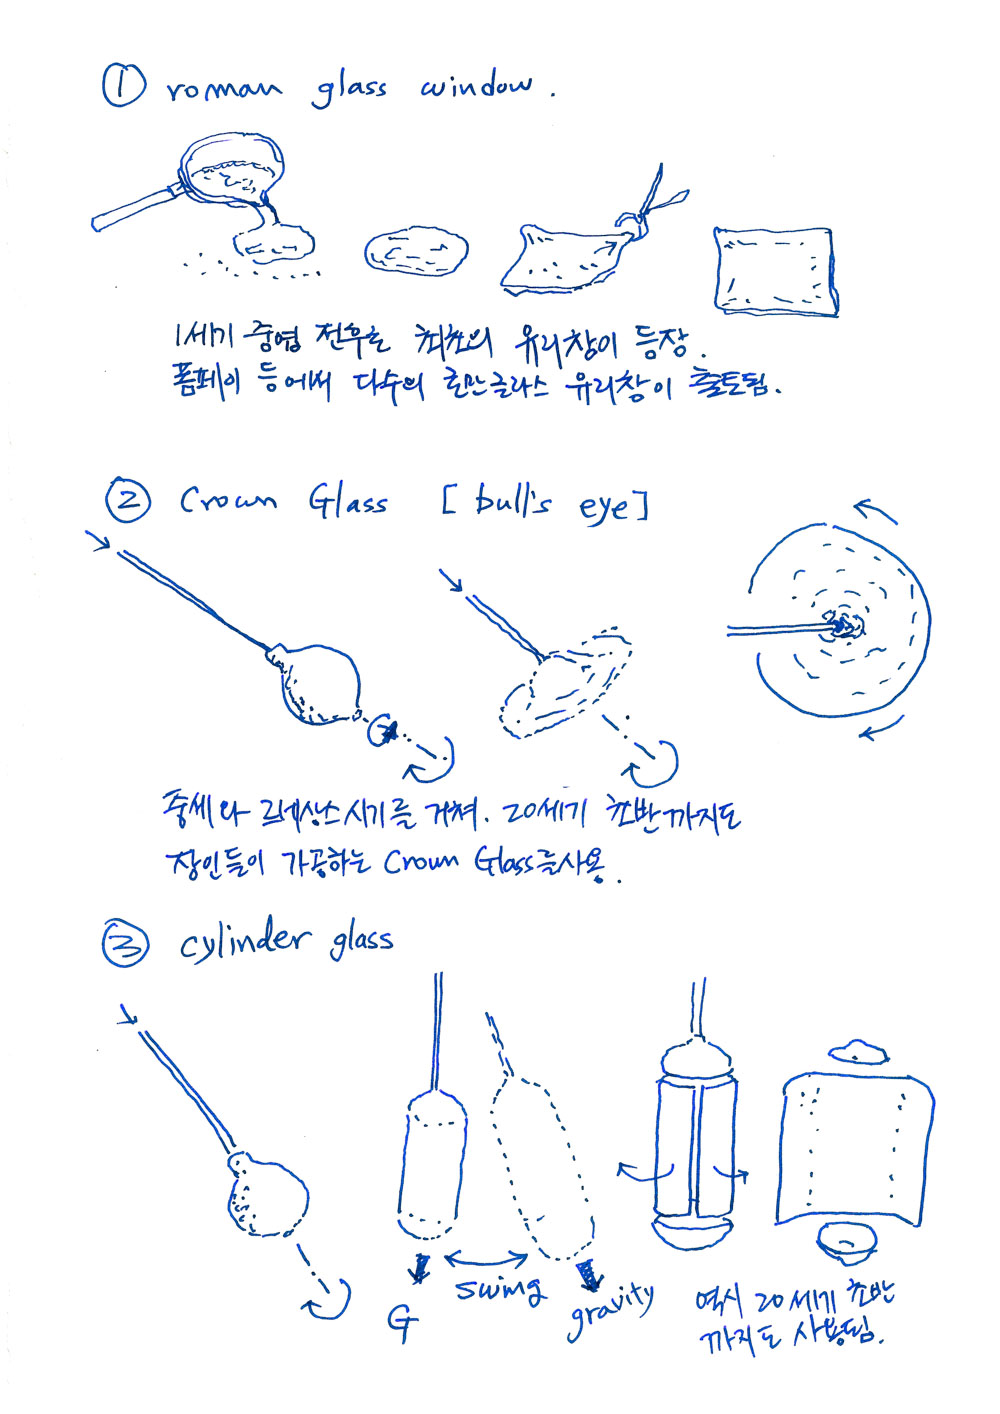 ① roman glass window.
1세기 중엽 전후로 최초의 유리창이 등장.
폼페이 등에서 다수의 로만글라스 유리창이 출토됨.
② Crown Glass [bull's eye]
중세와 르네상스시기를 거쳐. 20세기 초반까지도
장인들이 가공하는 Crown Glass를사용.
③ cylinder glass
G
swing
gravity
역시 20세기 초반
까지도 사용됨.